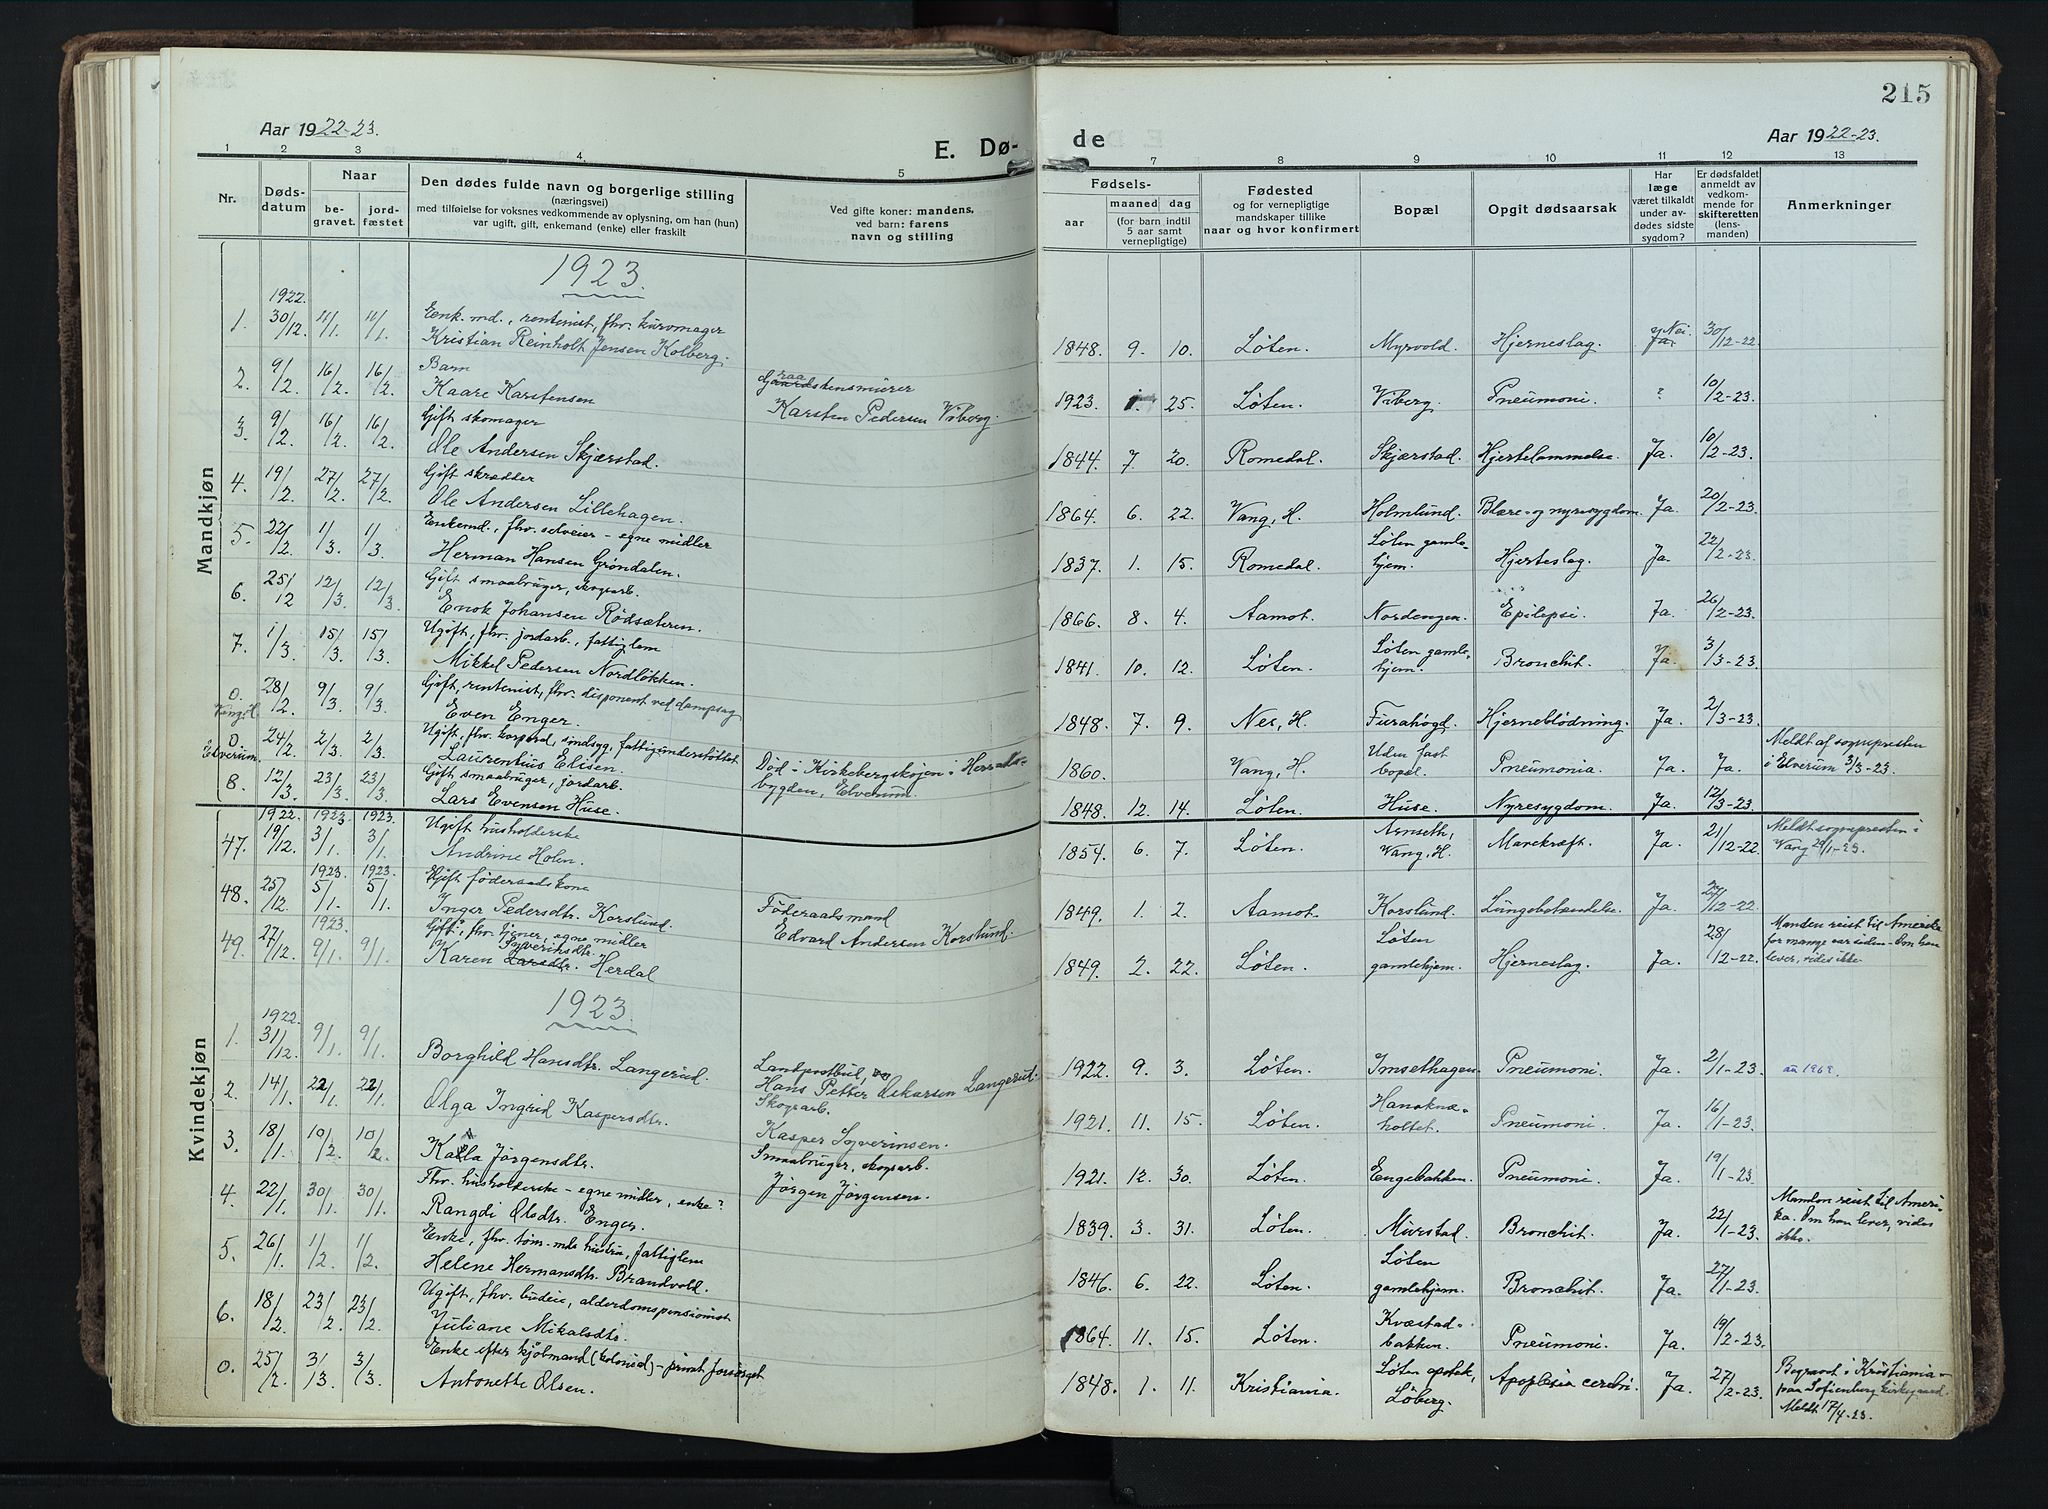 215
Aar 1922-23.
E. Dø-
de
Aar 1922-23.
1 2 3 4 5 7 8 9 10 11 12 13
Nr.
Dødsdatum
Naar
begravet. jordfæstet
Den dødes fulde navn og borgerlige stilling
(næringsvei)
med tilføielse for voksnes vedkommende av oplysning, om han (hun)
var ugift, gift, enkemand (enke) eller fraskilt
Ved gifte koner: mandens,
ved barn: farens
navn og stilling
Fødsels-
aar
maaned dag
(for barn indtil
5 aar samt
vernepligtige)
Fødested
og for vernepligtige
mandskaper tillike
naar og hvor konfirmert
Bopæl
Opgit dødsaarsak
Har
læge
været tilkaldt
under av-
dødes sidste
sygdom?
Er dødsfaldet
anmeldt av
vedkom-
mende for
skifteretten
(lens-
manden)
Anmerkninger
Mandkjøn
1923.
1922.
1. 30/12. 11/1. 11/1. Enk.md., rentenist, fhv. kuromager
Kristian Reinholt Jensen Kolberg. 1848. 9. 10. Løten. Myrvold. Hjerneslag. Ja. Nei. 30/12-22
2. 9/2. 16/2. 16/2. Barn
Kaare Karstensen Graastensmurer
Karsten Pedersen Viberg. 1923. 1. 25. Løten. Viberg. Pneumoni. ? 10/2-23.
3. 9/2. 16/2. 16/2. Gift skomager
Ole Andersen Skjærstad. 1844. 7. 20. Romedal. Skjærstad. Hjertelammelse. Ja. 10/2-23.
4. 19/2. 27/2. 27/2. Gift skrædder
Ole Andersen Lillehagen. 1864. 6. 22. Vang, H. Holmlund. Blære- og nyresygdom. Ja. 20/2-23.
5. 22/2. 1/3. 1/3. Enkemd., fhv. selveier - egne midler
Herman Hansen Grøndalen. 1837. 1. 15. Romedal. Løten gamle-
hjem. Hjerteslag. Ja. 22/2-23.
6. 25/12 12/3. 12/3. Gift smaabruger, skogsarb.
Enok Johansen Rødsæteren. 1866. 8. 4. Aamot. Nordengen. Epilepsi. Ja. 26/2-23.
7. 1/3. 15/3. 15/3. Ugift, fhv. jordarb., fattiglem
Mikkel Pedersen Nordløkken. 1841. 10. 12. Løten. Løten gamle-
hjem. Bronchit. Ja. 3/3-23.
0. 28/2. 9/3. 9/3. Gift, rentenist, fhv. disponent ved dampsag
Even Enger. 1848. 7. 9. Nes, H. Furahøgd. Hjerneblødning. Ja. 2/3-23.
0. Elverum. 24/2. 2/3. 2/3. Ugift, fhv. korporal, sindsyg, fattigunderstøttet
Laurentius Elisen. Død i Kirkebergskojen i Herrads-
bygden, Elverum. 1860. Vang, H. Uden fast
bopæl. Pneumonia. Ja. Ja. Meldt af sognepresten
i Elverum 3/3-23.
8. 12/3. 23/3. 23/3. Gift smaabruger, jordarb.
Lars Evensen Huse. 1848. 12. 14. Løten. Huse. Nyresygdom. Ja. 12/3-23.
Kvindekjøn
1922. 1923. 1923.
47. 19/12. 3/1. 3/1. Ugift husholderske
Andrine Holen. 1854. 6. 7. Løten. Arnseth,
Vang, H. Mavekræft. Ja. 21/12-22. Meldt sognepresten i
Vang 20/1-23.
1923. 1923.
48. 25/12. 5/1. 5/1. Gift føderaadskone
Inger Pedersdtr. Korslund. Føderaadsmand
Edvard Andersen Korslund. 1849. 1. 2. Aamot. Korslund. Lungebetændelse. Ja. 27/12-22.
1923.
49. 27/12. 9/1. 9/1. Gift, fhv. tjener, egne midler
Karen Larsdtr. Syverinsdtr. Herdal 1849. 2. 22. Løten. Løten
gamlehjem. Hjerneslag. Ja. 28/12-22. Manden reist til Amerika
for mange aar siden. Om han
lever, vides ikke.
1923.
1922.
1. 31/12. 9/1. 9/1. Borghild Hansdtr. Langerud. Landpostbud,
Hans Petter Oskarsen Langerud. 1922. 9. 3. Løten. Imsethagen. Pneumoni. Ja. 2/1-23.
2. 14/1. 22/1. 22/1. Olga Ingrid Kaspersdtr. Skogsarb.
Kasper Syverinsen. 1921. 11. 15. Løten. Haneknæ-
holtet. Pneumoni. Ja. 16/1-23.
3. 18/1. 10/2. 10/2. Karla Jørgensdtr. Smaabruger, skogsarb.
Jørgen Jørgensen. 1921. 12. 30. Løten. Engebakken. Pneumoni. Ja. 19/1-23.
4. 22/1. 30/1. 30/1. Fhv. husholderske - egne midler, enke?
Rangdi Olsdtr. Enger. 1839. 3. 31. Løten. Murstad. Bronchit. Ja. 22/1-23. Manden reist til Ameri-
ka. Om han lever, vides
ikke.
5. 26/1. 1/2. 1/2. Enke, fhv. tøm.-mds hustru, fattiglem
Helene Hermansdtr. Brandvold. 1846. 6. 22. Løten. Løten
gamlehjem. Bronchit. Ja. 27/1-23.
6. 18/2. 23/2. 23/2. Ugift, fhv. budeie, alderdomspensionist
Juliane Mikalsdtr. 1864. 11. 15. Løten. Kvæstad-
bakken. Pneumoni. Ja. 19/2-23.
0. 25/2. 3/3. 3/3. Enke efter kjøbmand (kolonial) - privat forsørget
Antonette Olsen. 1848. 1. 11. Kristiania. Løten apotek,
Løberg. Apoplexia cerebri. Ja. 27/2-23. Begravet i Kristiania
paa Sofienberg kirkegaard.
Meldt 17/4-23.